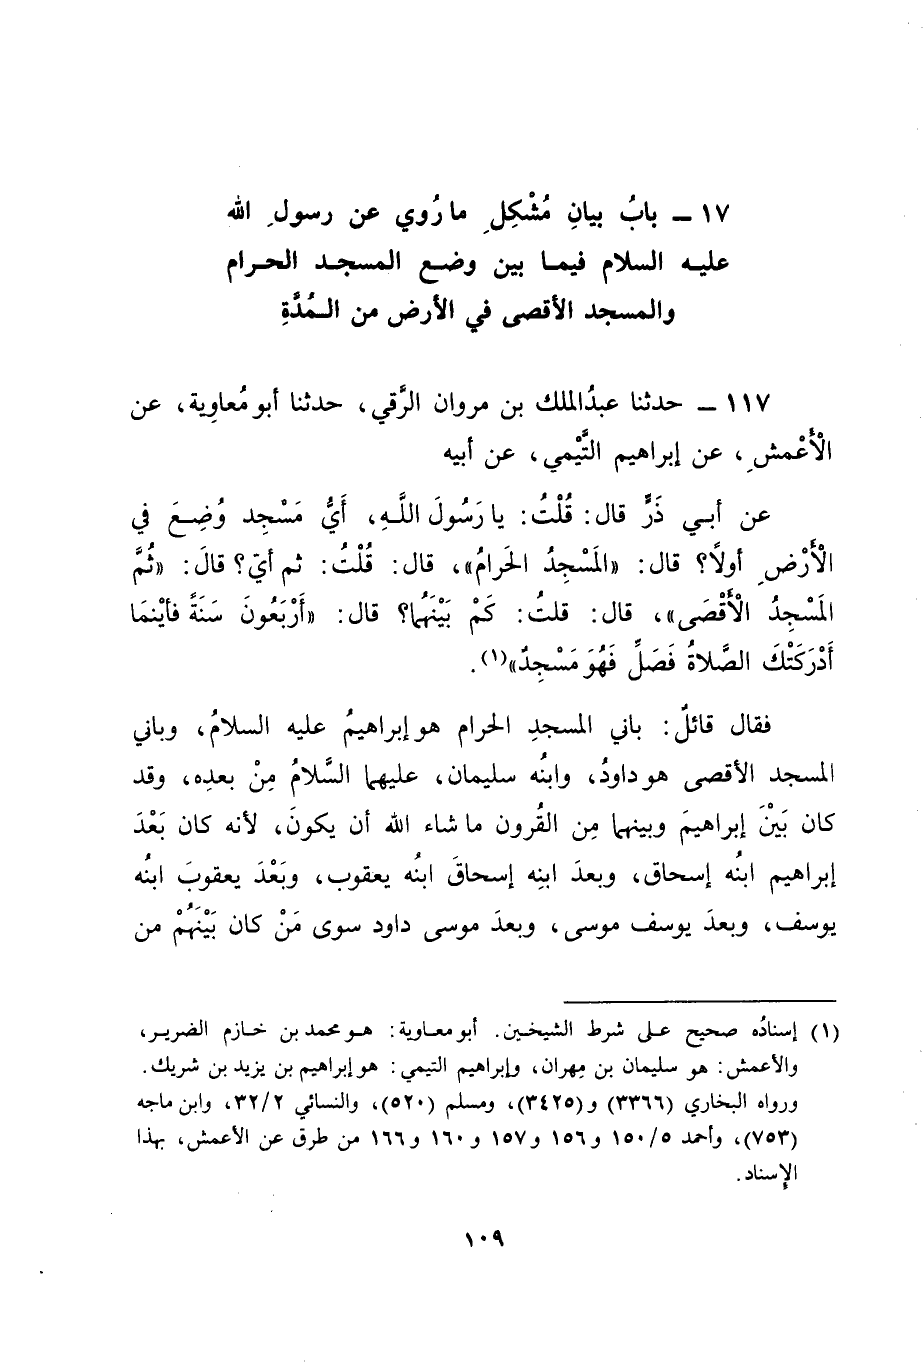 ١٧ ـ بابُ بيانِ مُشْكِلِ ما رُوي عن رسولِ الله
عليه السلام فيما بين وضع المسجد الحرام
والمسجد الأقصى في الأرض من المُدَّةِ
١١٧ ـ حدثنا عبدُ الملك بن مروان الرَّقي، حدثنا أبو مُعاوِية، عن
الأَعْمشِ، عن إبراهيم التَّيْمي، عن أبيه
عن أبي ذَرٍّ قال: قُلْتُ: يا رَسُولَ اللَّهِ، أَيُّ مَسْجِد وُضِعَ في
الأَرْضِ أولًا؟ قال: «المَسْجِدُ الحَرامُ»، قال: قُلْتُ: ثم أيّ؟ قالَ: «ثُمَّ
المَسْجِدُ الأَقْصَى»، قال: قلتُ: كَمْ بَيْنَهُما؟ قال: «أَرْبَعُونَ سَنَةً فأَيْنمَا
أَدْرَكَتْكَ الصَّلاةُ فَصَلِّ فَهُوَ مَسْجِدٌ»(١).
فقال قائلٌ: باني المسجدِ الحرام هو إبراهيمُ عليه السلامُ، وباني
المسجد الأقصى هو داودُ، وابنُه سليمان، عليهما السَّلامُ مِنْ بعدِه، وقد
كان بَيْنَ إبراهيمَ وبينهما مِن القُرون ما شاء الله أن يكونَ، لأنه كان بَعْدَ
إبراهيم ابنُه إسحاق، وبعدَ ابنِه إسحاقَ ابنُه يعقوب، وبَعْدَ يعقوبَ ابنُه
يوسف، وبعدَ يوسف موسى، وبعدَ موسى داود سوى مَنْ كان بَيْنَهُمْ من
(١) إسنادُه صحيح على شرط الشيخين. أبو معاوية: هو محمد بن خازم الضرير،
والأعمش: هو سليمان بن مِهران، وإبراهيم التيمي: هو إبراهيم بن يزيد بن شريك.
ورواه البخاري (٣٣٦٦) و(٣٤٢٥)، ومسلم (٥٢٠)، والنسائي ٣٢/٢، وابن ماجه
(٧٥٣)، وأحمد ١٥٠/٥ و١٥٦ و١٥٧ و١٦٠ و١٦٦ من طرق عن الأعمش، بهذا
الإِسناد.
١٠٩